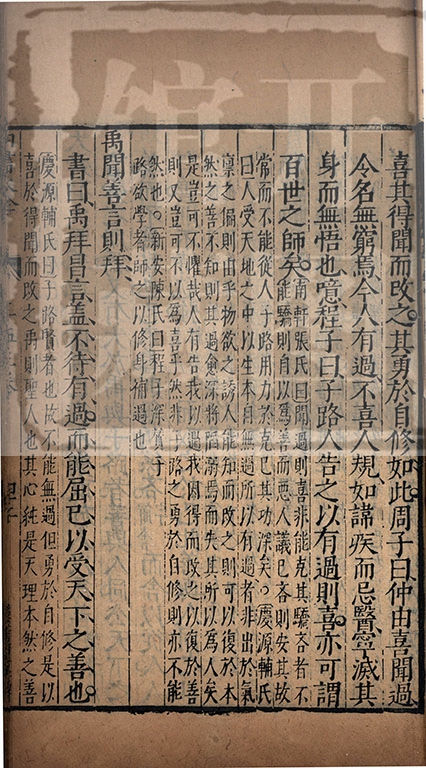 喜其得聞而改之其勇於自修如此周子曰仲由喜聞過
令名無窮焉今人有過不喜人規如諱疾而忌醫寧滅其
身而無悟也噫程子曰子路人告之以有過則喜亦可謂
百世之師矣
南軒張氏曰聞過則喜非能克其驕吝者不
能驕則自以爲善而惡人議已吝則安其故
常而不能從人子路用力於克已其功深矣○慶源輔氏
曰人受天地之中以生本自無過所以有過者非出於氣
稟之偏則由乎物欲之誘人能知而改之則可以復於本
然之善不知則其過愈深將陷溺焉而失其所以爲人矣
是豈可不懼哉人有告我以過我因得而改之以復於善
則又豈可不以爲喜乎然非子路之勇於自修則亦不能
然也○新安陳氏曰程子深賞子
路欲學者師之以修身補過也
禹聞善言則拜
書曰禹拜昌言蓋不待有過而能屈已以受天下之善也
慶源輔氏曰子路賢者也故不能無過但勇於自修是以
喜於得聞而改之禹則聖人也其心純是天理本然之善